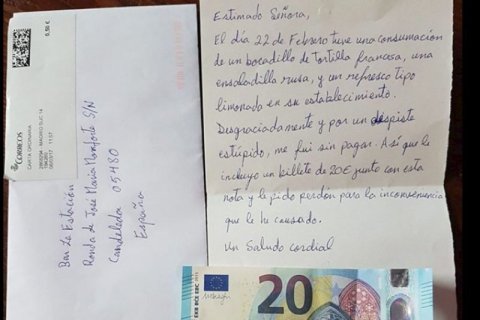 0,50 €
CORREOS
CARTA ORDINARIA
Bar La Estación
Ronda de José María Monforte S/N
Candeleda 05480
España
Estimado Señora,
El día 22 de Febrero tuve una consumación
de un bocadillo de Tortilla francesa, una
ensaladilla rusa, y un refresco tipo
limonada en su establecimiento.
Desgraciadamente y por un despiste
estúpido, me fui sin pagar. Así que le
incluyo un billete de 20€ junto con esta
nota y le pido perdón para la inconveniencia
que le he causado.
Un Saludo cordial
20